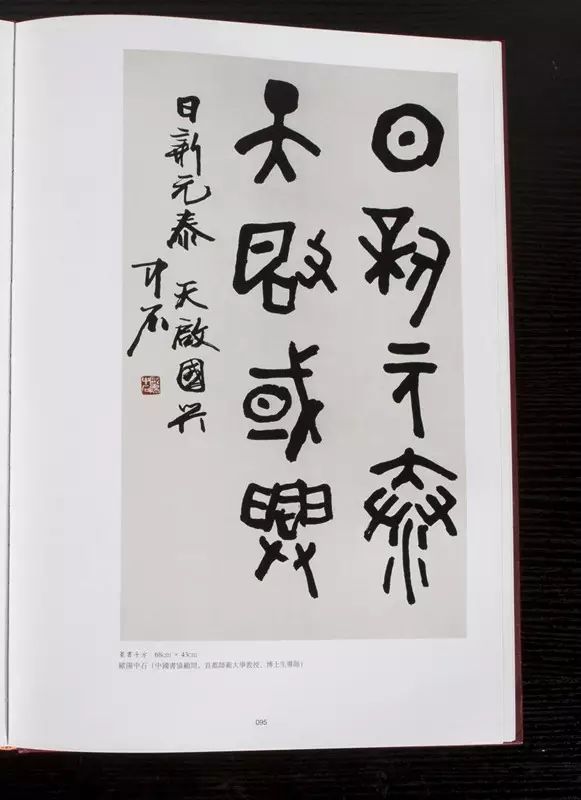 日新元泰
天啟或興
日新元泰 天啟國兴
中石
篆書斗方 68cm × 43cm
歐陽中石（中國書協顧問、首都師範大學教授、博士生導師）
095